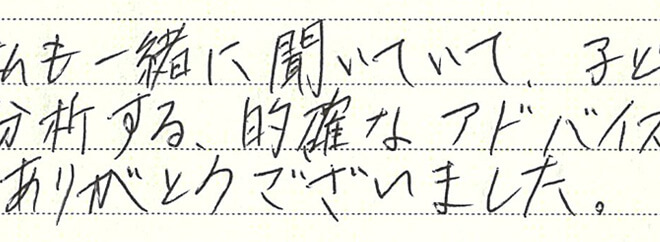 私も一緒に聞いていて、子ど
分析する、的確なアドバイス
ありがとうございました。